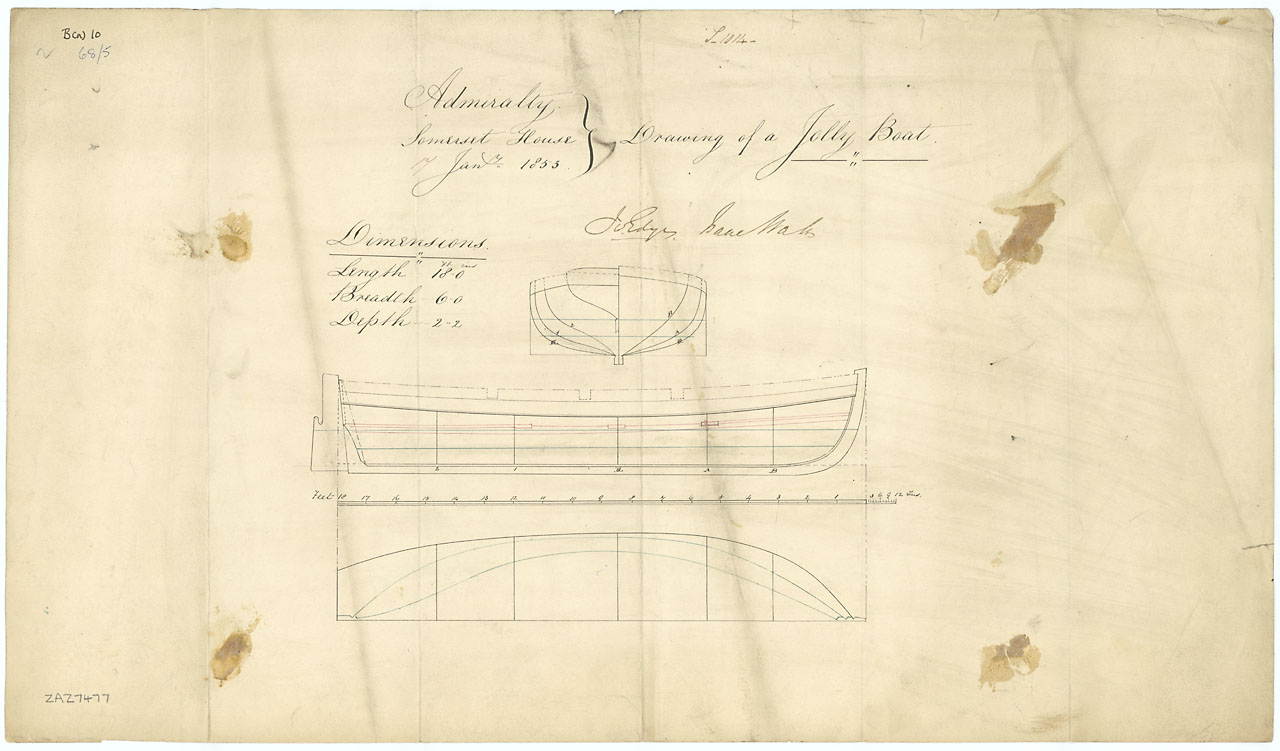 Bow 10
68/5
Admiralty
Somerset House
7 Jany. 1853.
Drawing of a Jolly Boat.
Dimensions.
ft ins
Length 18.0
Breadth 6-0
Depth 2-2
2 1 A B
Feet 18 17 16 15 14 13 12 11 10 9 8 7 6 5 4 3 2 1 3 6 9 12 Ins.
ZAZ7477